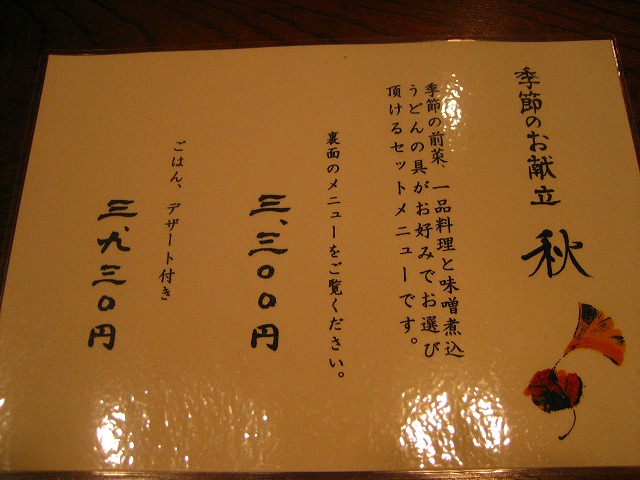 季節のお献立 秋
季節の前菜、一品料理と味噌煮込
うどんの具がお好みでお選び
頂けるセットメニューです。
裏面のメニューをご覧ください。
三、三〇〇円
ごはん、デザート付き
三、九三〇円